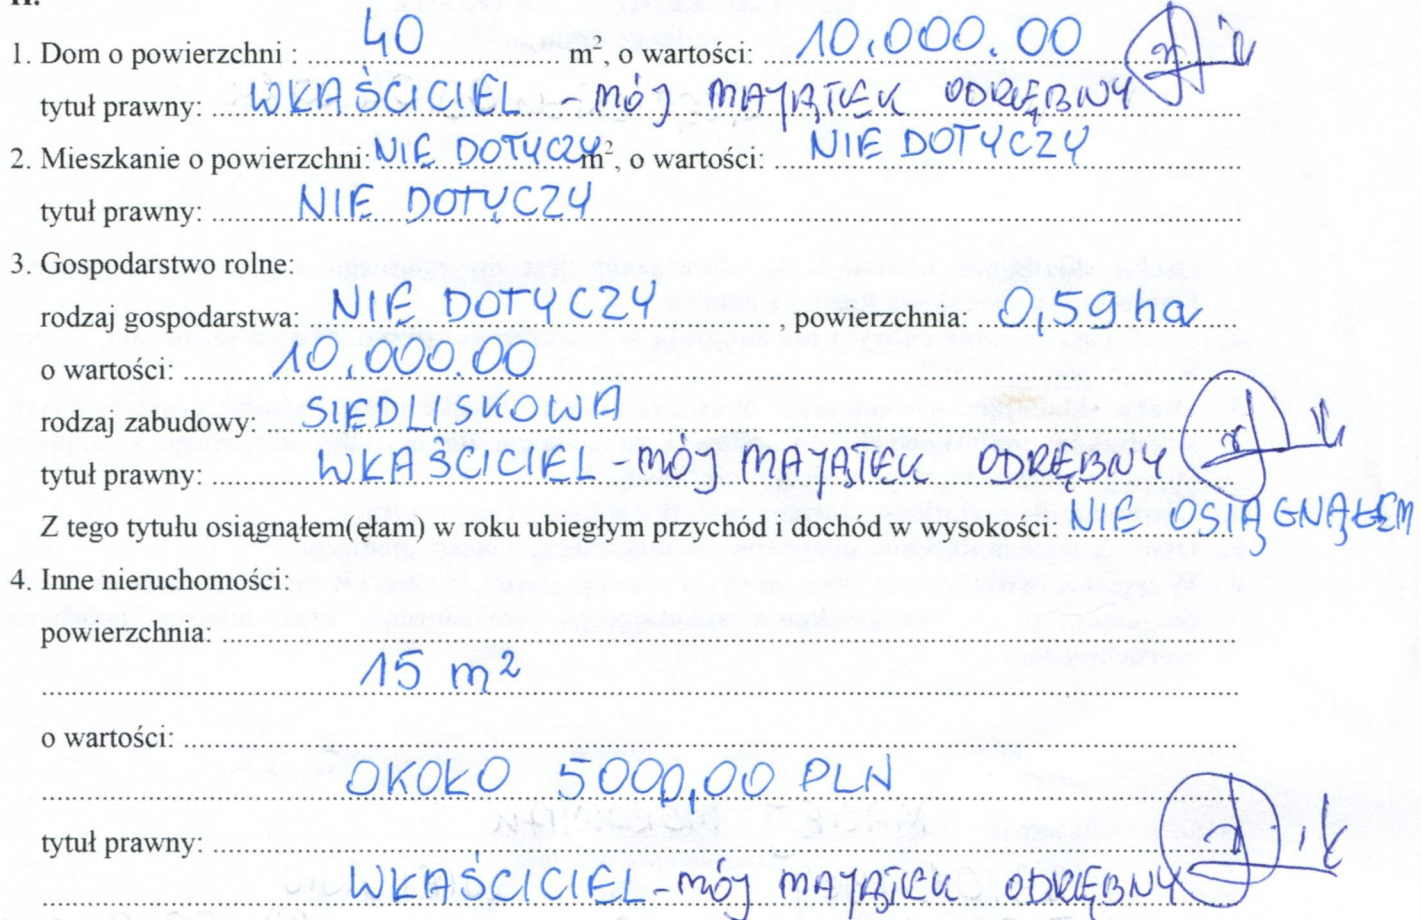 II.
1. Dom o powierzchni : 40 m², o wartości: 10.000.00
tytuł prawny: WŁAŚCICIEL - MÓJ MAJĄTEK ODRĘBNY
2. Mieszkanie o powierzchni: NIE DOTYCZY m², o wartości: NIE DOTYCZY
tytuł prawny: NIE DOTYCZY
3. Gospodarstwo rolne:
rodzaj gospodarstwa: NIE DOTYCZY, powierzchnia: 0,59 ha
o wartości: 10.000.00
rodzaj zabudowy: SIEDLISKOWA
tytuł prawny: WŁAŚCICIEL - MÓJ MAJĄTEK ODRĘBNY
Z tego tytułu osiągnąłem(ęłam) w roku ubiegłym przychód i dochód w wysokości: NIE OSIĄGNĄŁEM
4. Inne nieruchomości:
powierzchnia:
15 m²
o wartości:
OKOŁO 5000,00 PLN
tytuł prawny:
WŁAŚCICIEL - MÓJ MAJĄTEK ODRĘBNY